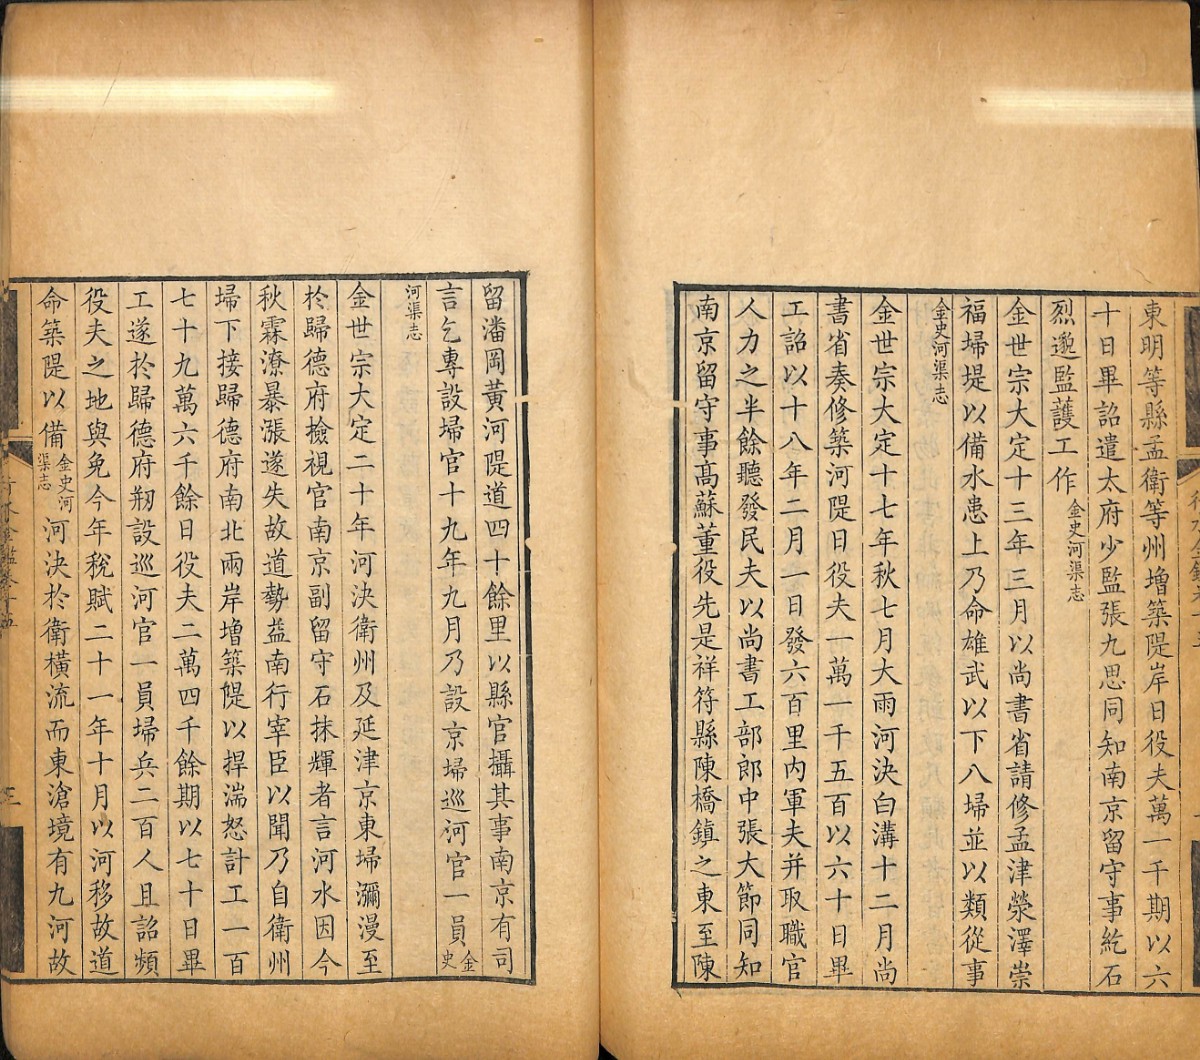 東明等縣孟衛等州增築隄岸日役夫萬一千期以六
十日畢詔遣太府少監張九思同知南京留守事紇石
烈邈監護工作金史河渠志
金世宗大定十三年三月以尚書省請修孟津滎澤崇
福埽堤以備水患上乃命雄武以下八埽並以類從事
金史河渠志
金世宗大定十七年秋七月大雨河決白溝十二月尚
書省奏修築河隄日役夫一萬一千五百以六十日畢
工詔以十八年二月一日發六百里內軍夫并取職官
人力之半餘聽發民夫以尚書工部郎中張大節同知
南京留守事高蘇董役先是祥符縣陳橋鎮之東至陳
留潘岡黃河隄道四十餘里以縣官攝其事南京有司
言乞專設埽官十九年九月乃設京埽巡河官一員金史
河渠志
金世宗大定二十年河決衛州及延津京東埽瀰漫至
於歸德府檢視官南京副留守石抹輝者言河水因今
秋霖潦暴漲遂失故道勢益南行宰臣以聞乃自衛州
埽下接歸德府南北兩岸增築隄以捍湍怒計工一百
七十九萬六千餘日役夫二萬四千餘期以七十日畢
工遂於歸德府剏設巡河官一員埽兵二百人且詔頻
役夫之地與免今年稅賦二十一年十月以河移故道
命築隄以備金史河渠志河決於衛橫流而東滄境有九河故